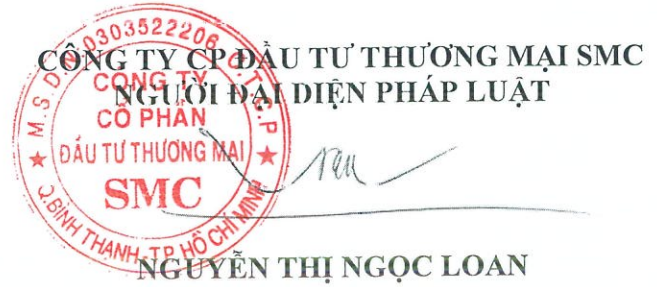 CÔNG TY CP ĐẦU TƯ THƯƠNG MẠI SMC
NGƯỜI ĐẠI DIỆN PHÁP LUẬT
M.S.D.N:0303522206.C.T.C.P
CÔNG TY
CỔ PHẦN
ĐẦU TƯ THƯƠNG MẠI
SMC
Q.BÌNH THẠNH-TP HỒ CHÍ MINH
NGUYỄN THỊ NGỌC LOAN